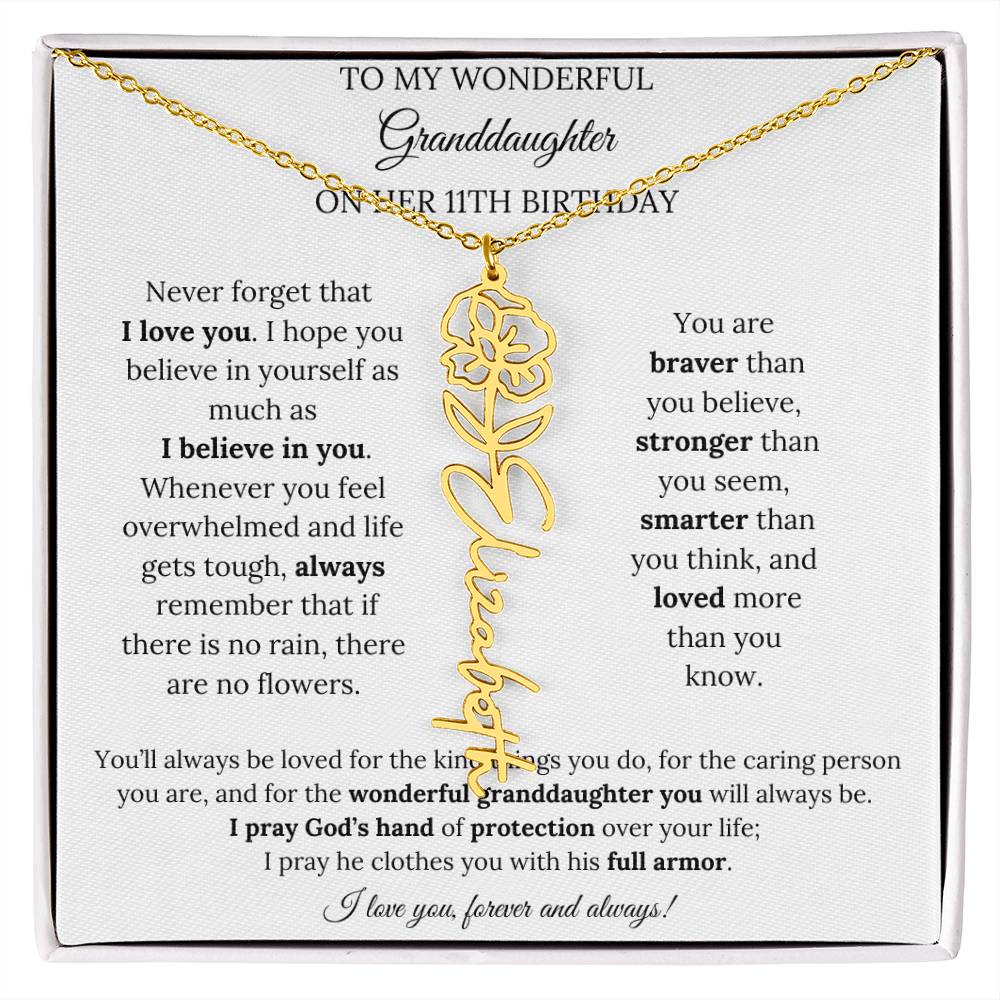 TO MY WONDERFUL
Granddaughter
ON HER 11TH BIRTHDAY
Never forget that
I love you. I hope you
believe in yourself as
much as
I believe in you.
Whenever you feel
overwhelmed and life
gets tough, always
remember that if
there is no rain, there
are no flowers.
Elizabeth
You are
braver than
you believe,
stronger than
you seem,
smarter than
you think, and
loved more
than you
know.
You'll always be loved for the kind things you do, for the caring person
you are, and for the wonderful granddaughter you will always be.
I pray God's hand of protection over your life;
I pray he clothes you with his full armor.
I love you, forever and always!